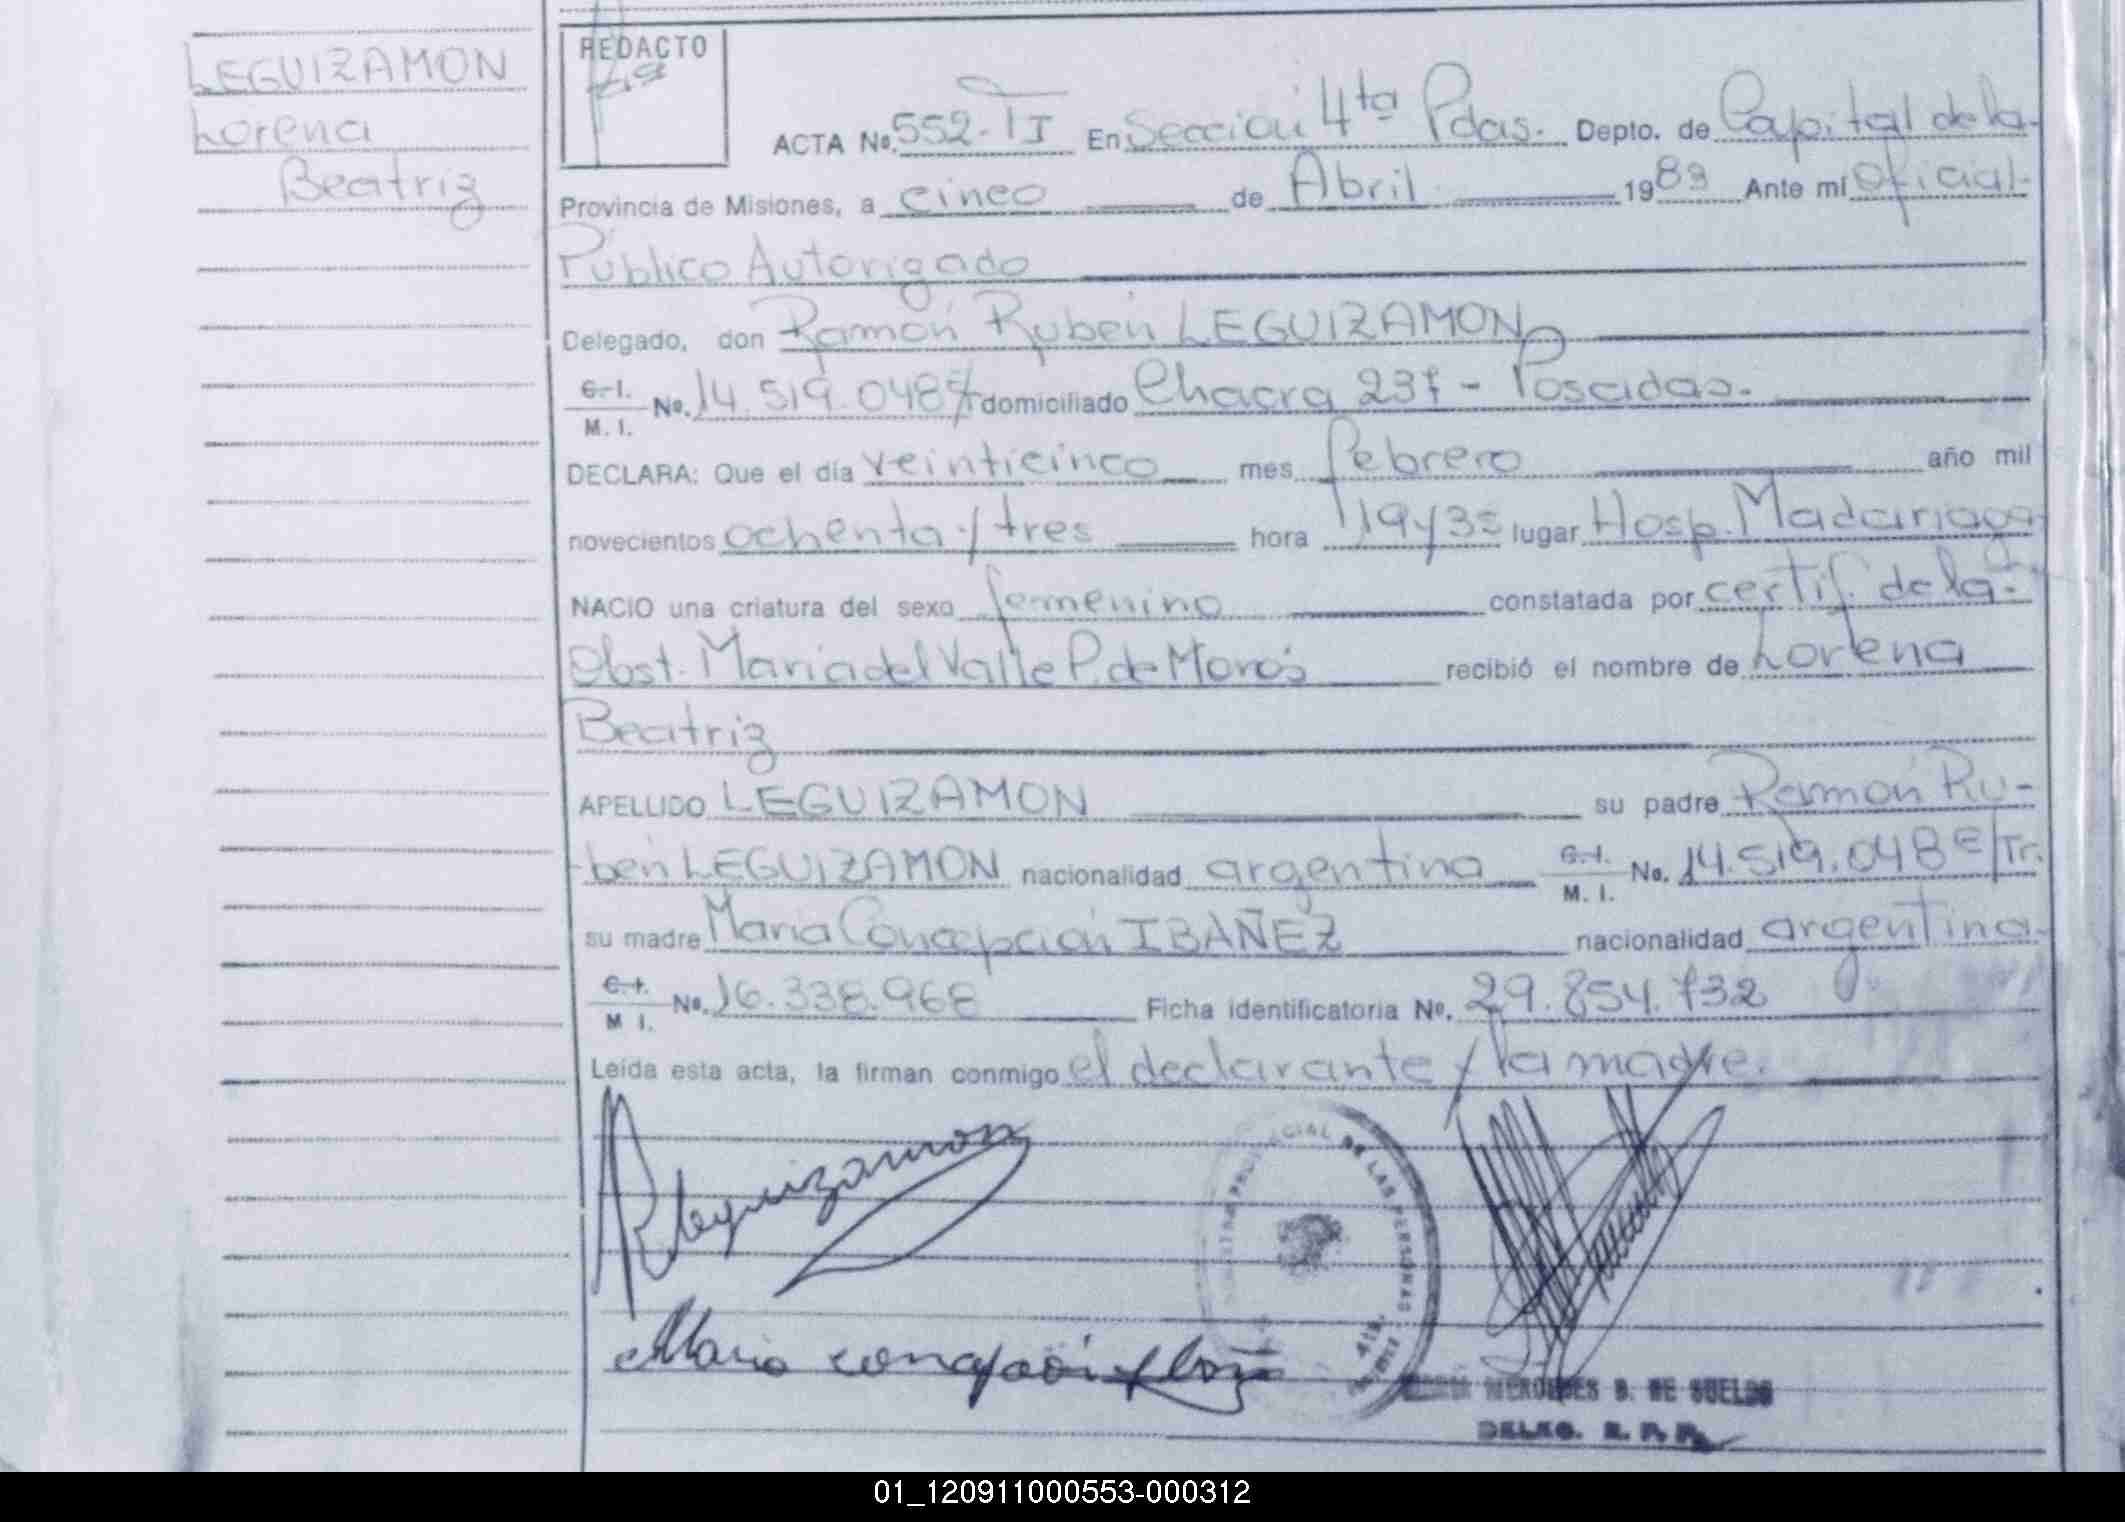 LEGUIZAMON
Lorena
Beatriz
REDACTO
ACTA No. 552-TI En Sección 4ta Pdas. Depto. de Capital de la
Provincia de Misiones, a cinco de Abril 1983 Ante mí Oficial
Público Autorizado
Delegado, don Ramón Rubén LEGUIZAMON
C.I. M. I. No. 14.519.048 domiciliado Chacra 237 - Posadas.
DECLARA: Que el día veinticinco mes febrero año mil
novecientos ochenta y tres hora 19y35 lugar Hosp. Madariaga
NACIO una criatura del sexo femenino constatada por certif. de la
Obst. María del Valle P. de Moros recibió el nombre de Lorena
Beatriz
APELLIDO LEGUIZAMON su padre Ramón Ru-
-bén LEGUIZAMON nacionalidad argentina C.I. M. I. No. 14.519.048 E/Tr.
su madre María Concepción IBAÑEZ nacionalidad argentina
C.I. M I. No. 16.338.968 Ficha identificatoria No. 29.854.732
Leída esta acta, la firman conmigo el declarante y la madre.
RLeguizamon
DE LAS PERSONAS
Maria concepción
MERCEDES B. DE SUELDO
DELEG. R. P. P.
01_120911000553-000312